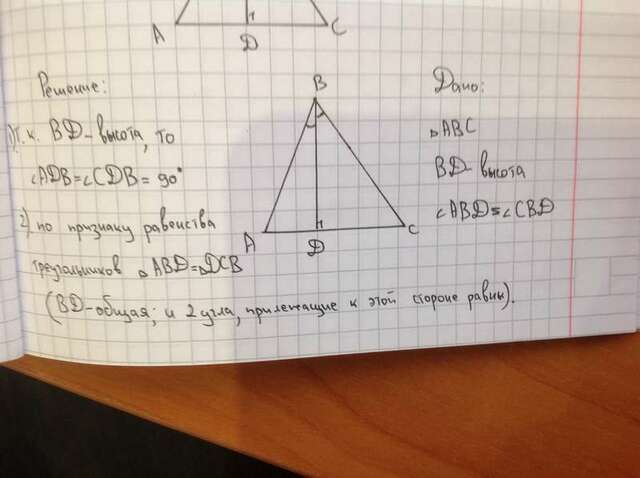 A
D
C
Решение:
Дано:
B
1) Т. к. BD - высота, то
∠ADB = ∠CDB = 90°
2) по признаку равенства
треугольников △ABD = △DCB
(BD - общая; и 2 угла, прилежащие к этой стороне равны).
△ABC
BD - высота
∠ABD = ∠CBD
A
D
C